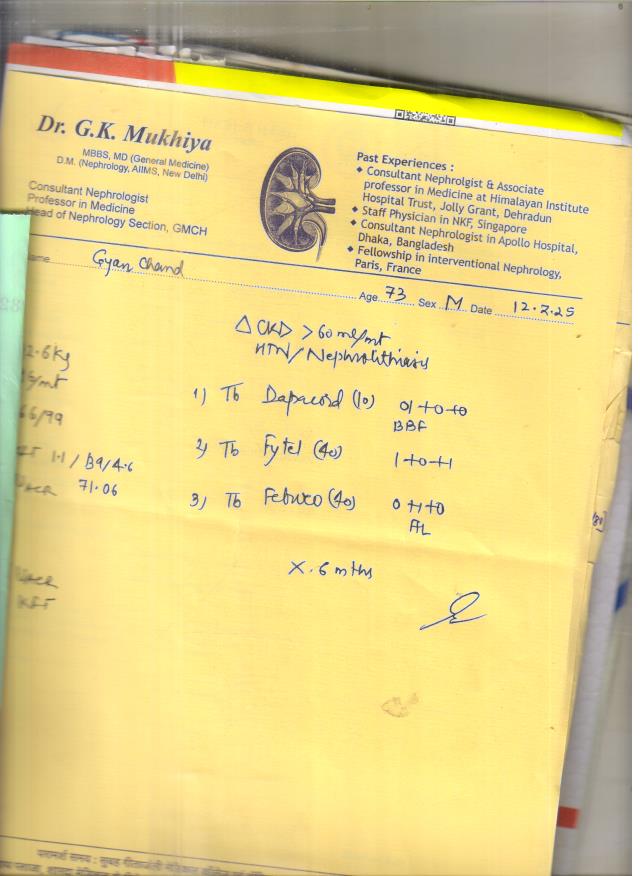 Dr. G.K. Mukhiya
MBBS, MD (General Medicine)
D.M. (Nephrology, AIIMS, New Delhi)
Consultant Nephrologist
Professor in Medicine
Head of Nephrology Section, GMCH
Past Experiences :
◆ Consultant Nephrolgist & Associate
professor in Medicine at Himalayan Institute
Hospital Trust, Jolly Grant, Dehradun
◆ Staff Physician in NKF, Singapore
◆ Consultant Nephrologist in Apollo Hospital,
Dhaka, Bangladesh
◆ Fellowship in interventional Nephrology,
Paris, France
ame Gyan Chand
Age 73 Sex M Date 12.2.25
Δ CKD > 60 ml/mt
HTN/Nephrolithiasis
2.6kg
/mt
66/99
1.1/139/4.6
71.06
1) Tb Dapacord (10) 01+0+0
BBF
2) Tb Fytel (40) 1+0+1
3) Tb Febuco (40) 0+1+0
AL
X. 6 mths
KFT
परामर्श समय : सुबह